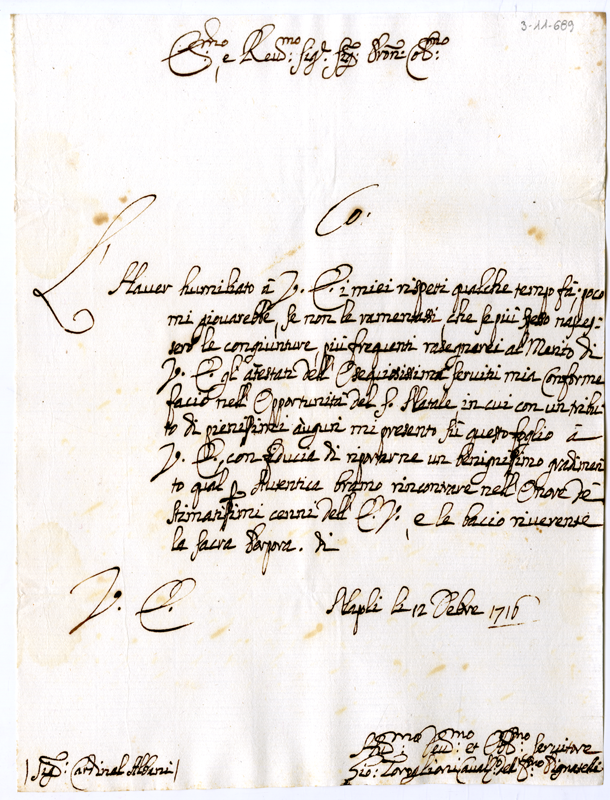 3-11-689
E.mo, e Reu.mo Sig.r Sig.r Pron. Col.mo
Co.
L'Hauer humiliato à V. E. i miei rispeti qualche tempo fà, poco
mi giouarebbe, se non le ramentassi, che se più spesso naues-
sero le congiunture, più frequenti rasegnarei al Merito di
V. E. gl'atestati dell'Osequiosissima seruitù mia Conforme
facio nell'Opportunità del S. Natale, in cui con un tribu
to di pienissimi àuguri mi presento sù questo foglio à
V. E., con fiducia di riportarne un benignissimo gradimen
to qual Autentica bramo rincontrare nell'Onore dè
stimatissimi cenni dell'E. V., e le bacio riuerente
la sacra Porpora. di
V. E. Napli li 12 Xbre 1716
Hu.mo Deu.mo et Obl.mo Seruitore
|Sig.r Cardinal Albani| Gio: Caual.r del Pignatelli